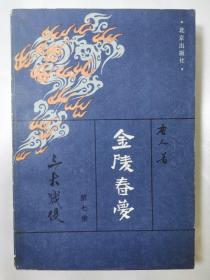 ·北京出版社·
唐人著
金陵春夢
第七集
三大战役